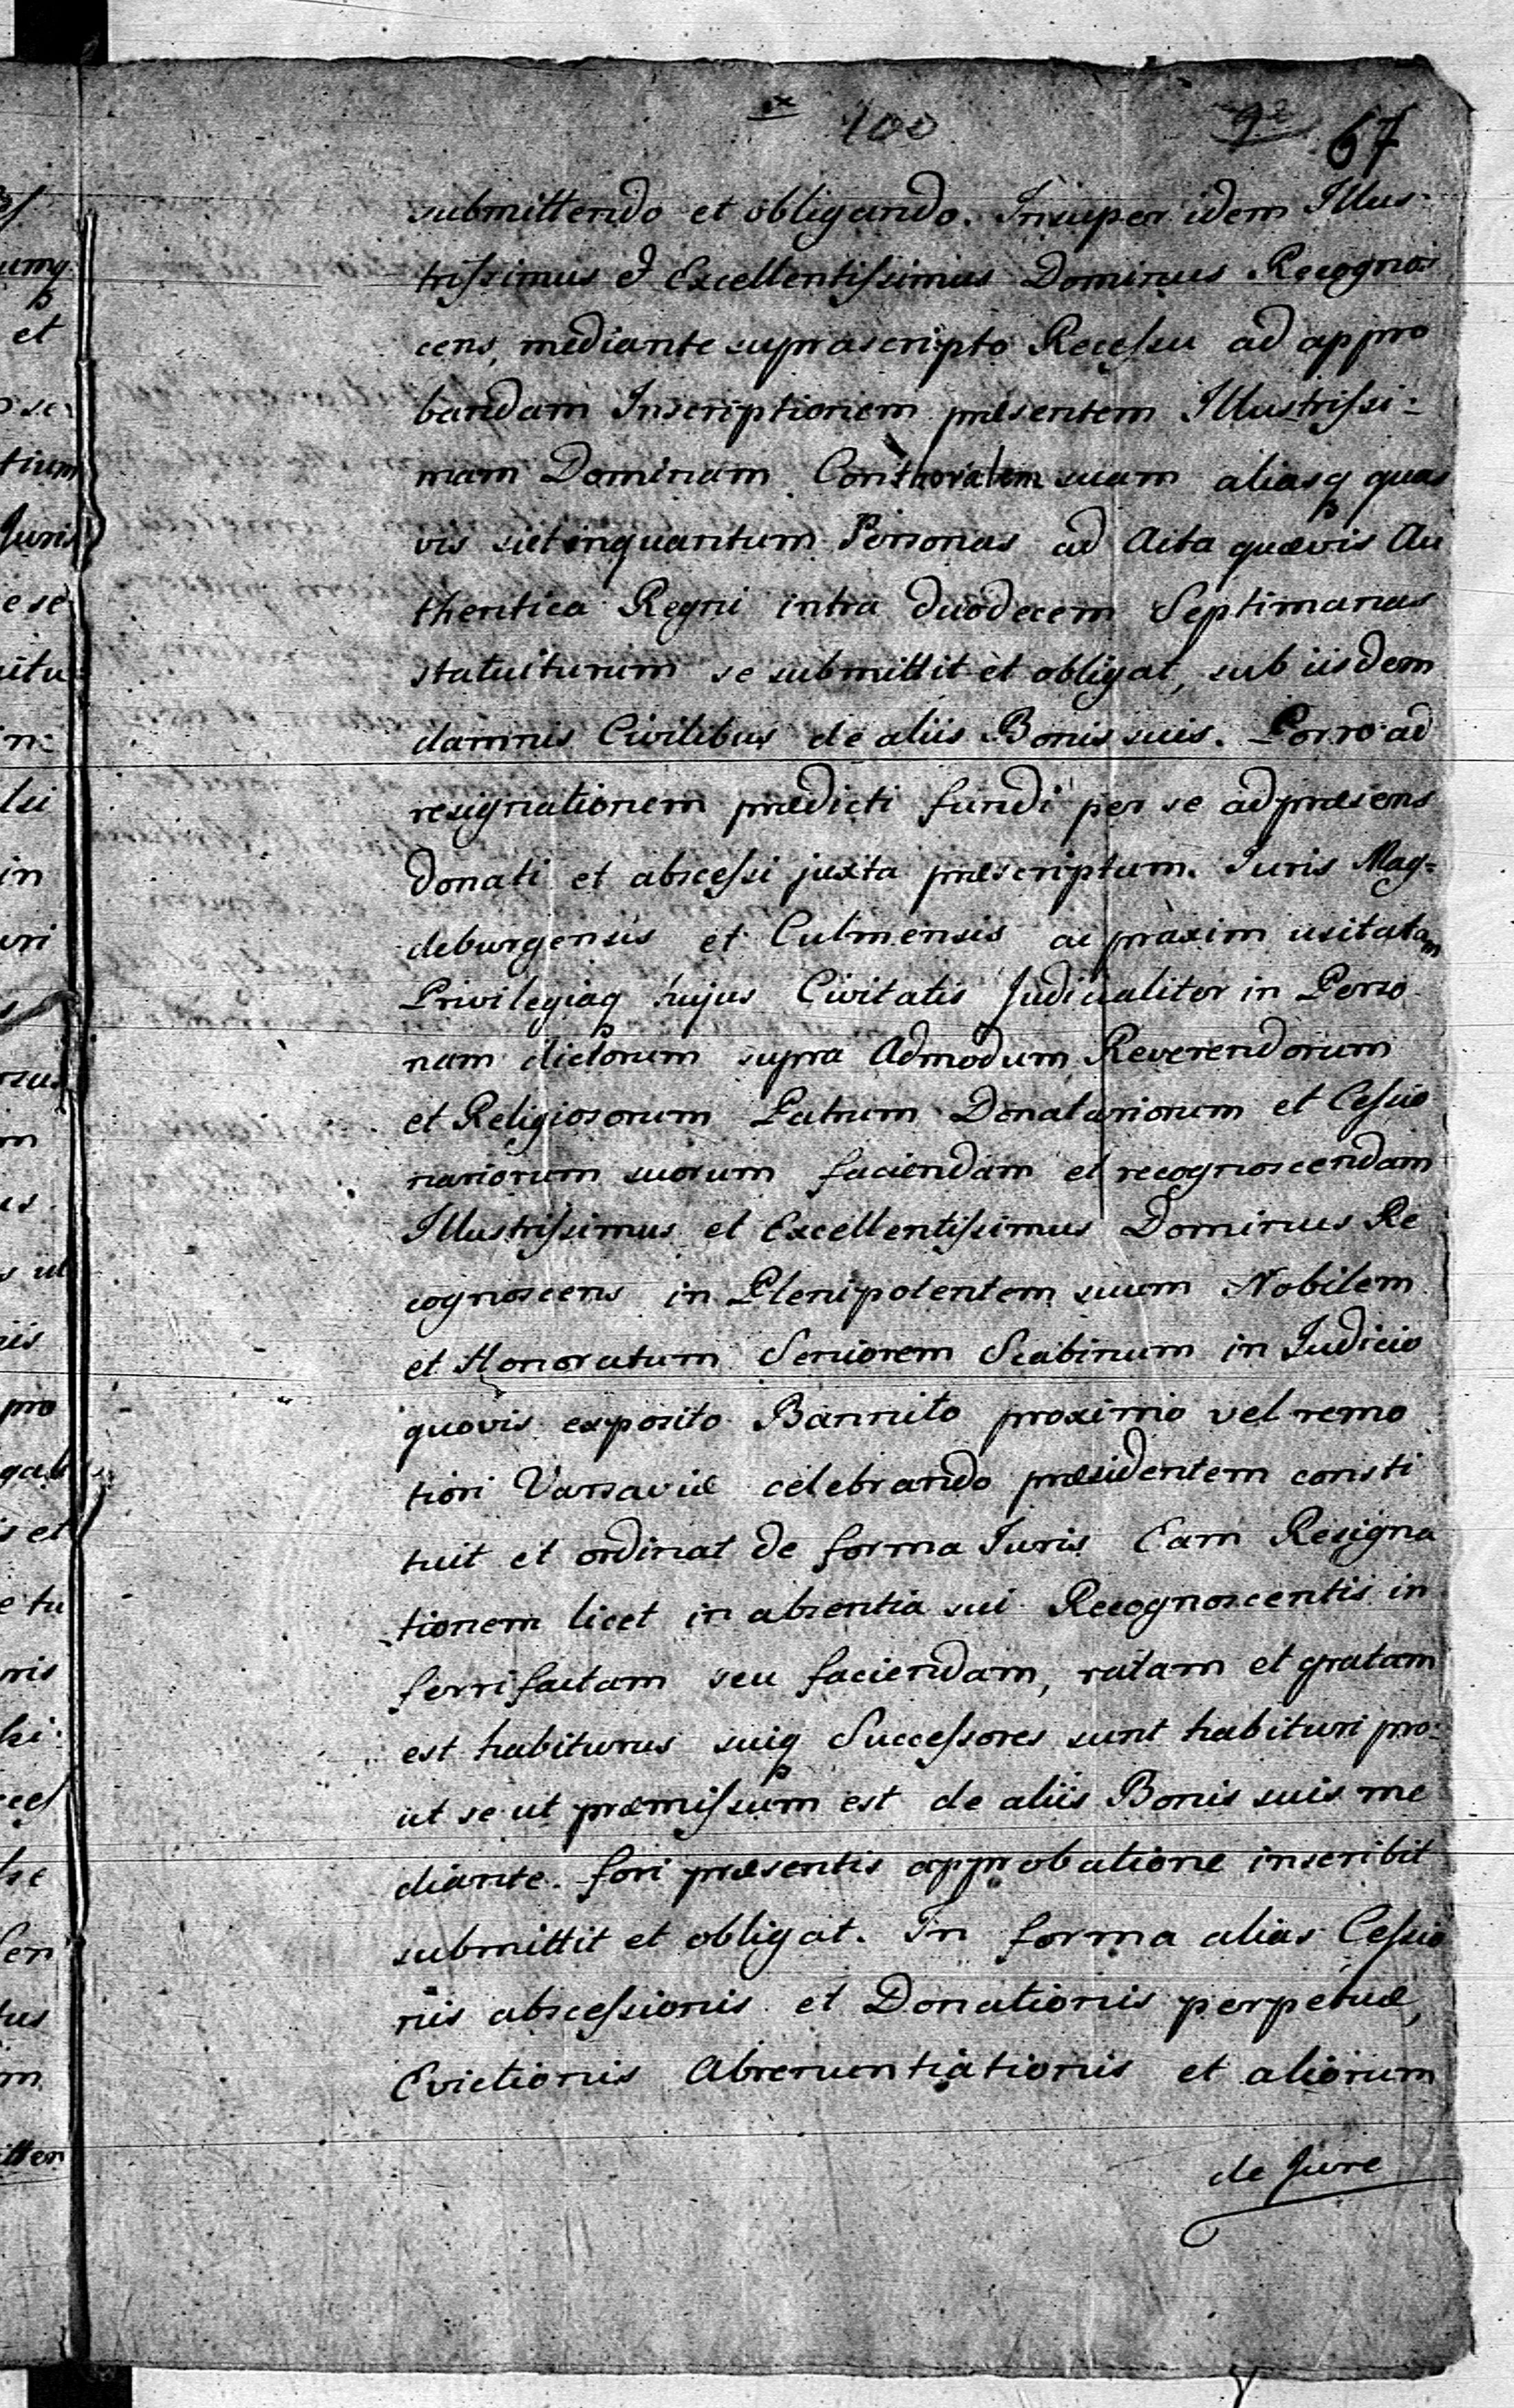 100
67
submittendo et obligando. Insuper idem Illus-
trissimus et Excellentissimus Dominus Recognos
cens, mediante suprascripto Recessu ad appro
bandam Inscriptionem præsentem Illustrissi-
mam Dominam Conthoralem suam aliasq quas
vis Personas ad Acta quævis Au
thentica Regni intra duodecem Septimanas
statuiturum se submittit et obligat, sub iisdem
damnis Civilibus de aliis Bonis suis. Porro ad
resignationem prædicti fundi per se ad præsens
donati et abscessi juxta præscriptum Iuris Mag-
deburgensis et Culmensis ac praxim usitatam
Privilegiaq hujus Civitatis Judicialiter in Perso
nam dictorum supra Admodum Reverendorum
et Religiosorum Patrum Donatariorum et Cessio
nariorum suorum faciendam et recognoscendam
Illustrissimus et Excellentissimus Dominus Re
cognoscens in Plenipotentem suum Nobilem
et Honoratum Seniorem Scabinum in Judicio
quovis exposito Bannito proximo vel remo
tiori Varsaviæ celebrando præsidentem consti
tuit et ordinat de forma Iuris Eam Resigna
tionem licet in absentia sui Recognoscentis in
ferri factam seu faciendam, ratam et gratam
est habiturus suiq Successores sunt habituri pro-
ut se ut præmissum est de aliis Bonis suis me
diante fori præsentis approbatione inscribit
submittit et obligat. In forma alias Cessio
nis abscessionis et Donationis perpetuæ,
Evictionis Abrenuntiationis et aliorum
de Jure